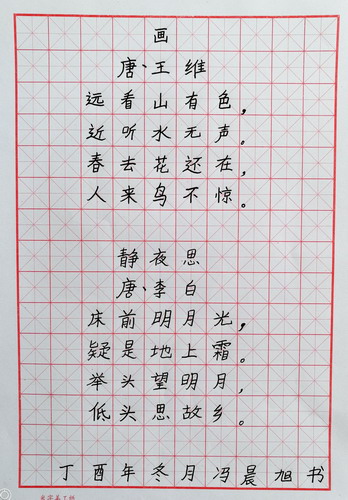 画
唐、王维
远看山有色，
近听水无声。
春去花还在，
人来鸟不惊。
静夜思
唐、李白
床前明月光，
疑是地上霜。
举头望明月，
低头思故乡。
丁酉年冬月冯晨旭书